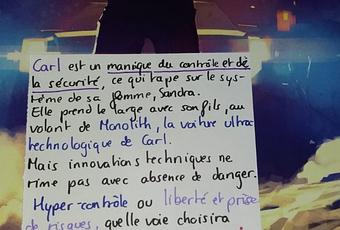 Carl est un manique du contrôle et de
la sécurité, ce qui tape sur le sys-
tème de sa femme, Sandra.
Elle prend le large avec son fils, au
volant de Monolith, la voiture ultra
technologique de Carl.
Mais innovations techniques ne
rime pas avec absence de danger.
Hyper-contrôle ou liberté et prise
de risques, quelle voie choisira